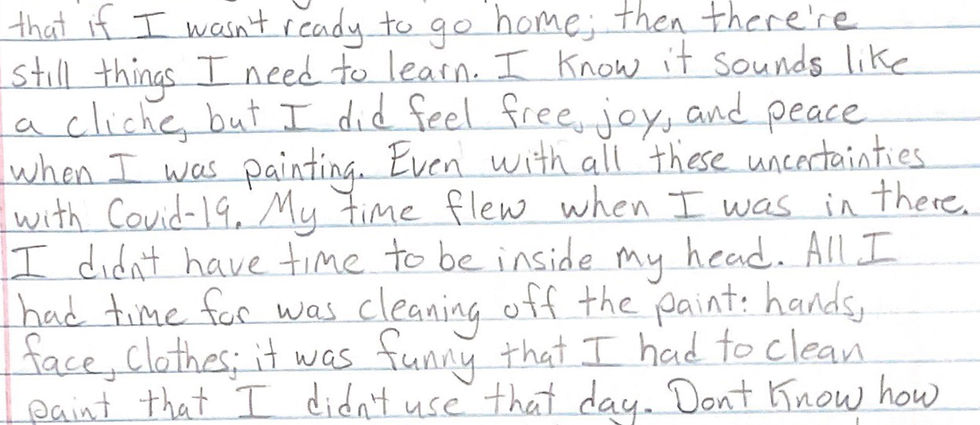 that if I wasn't ready to go home; then there're
still things I need to learn. I know it sounds like
a cliche, but I did feel free, joy, and peace
when I was painting. Even with all these uncertainties
with Covid-19. My time flew when I was in there.
I didn't have time to be inside my head. All I
had time for was cleaning off the paint: hands,
face, clothes; it was funny that I had to clean
paint that I didn't use that day. Dont know how